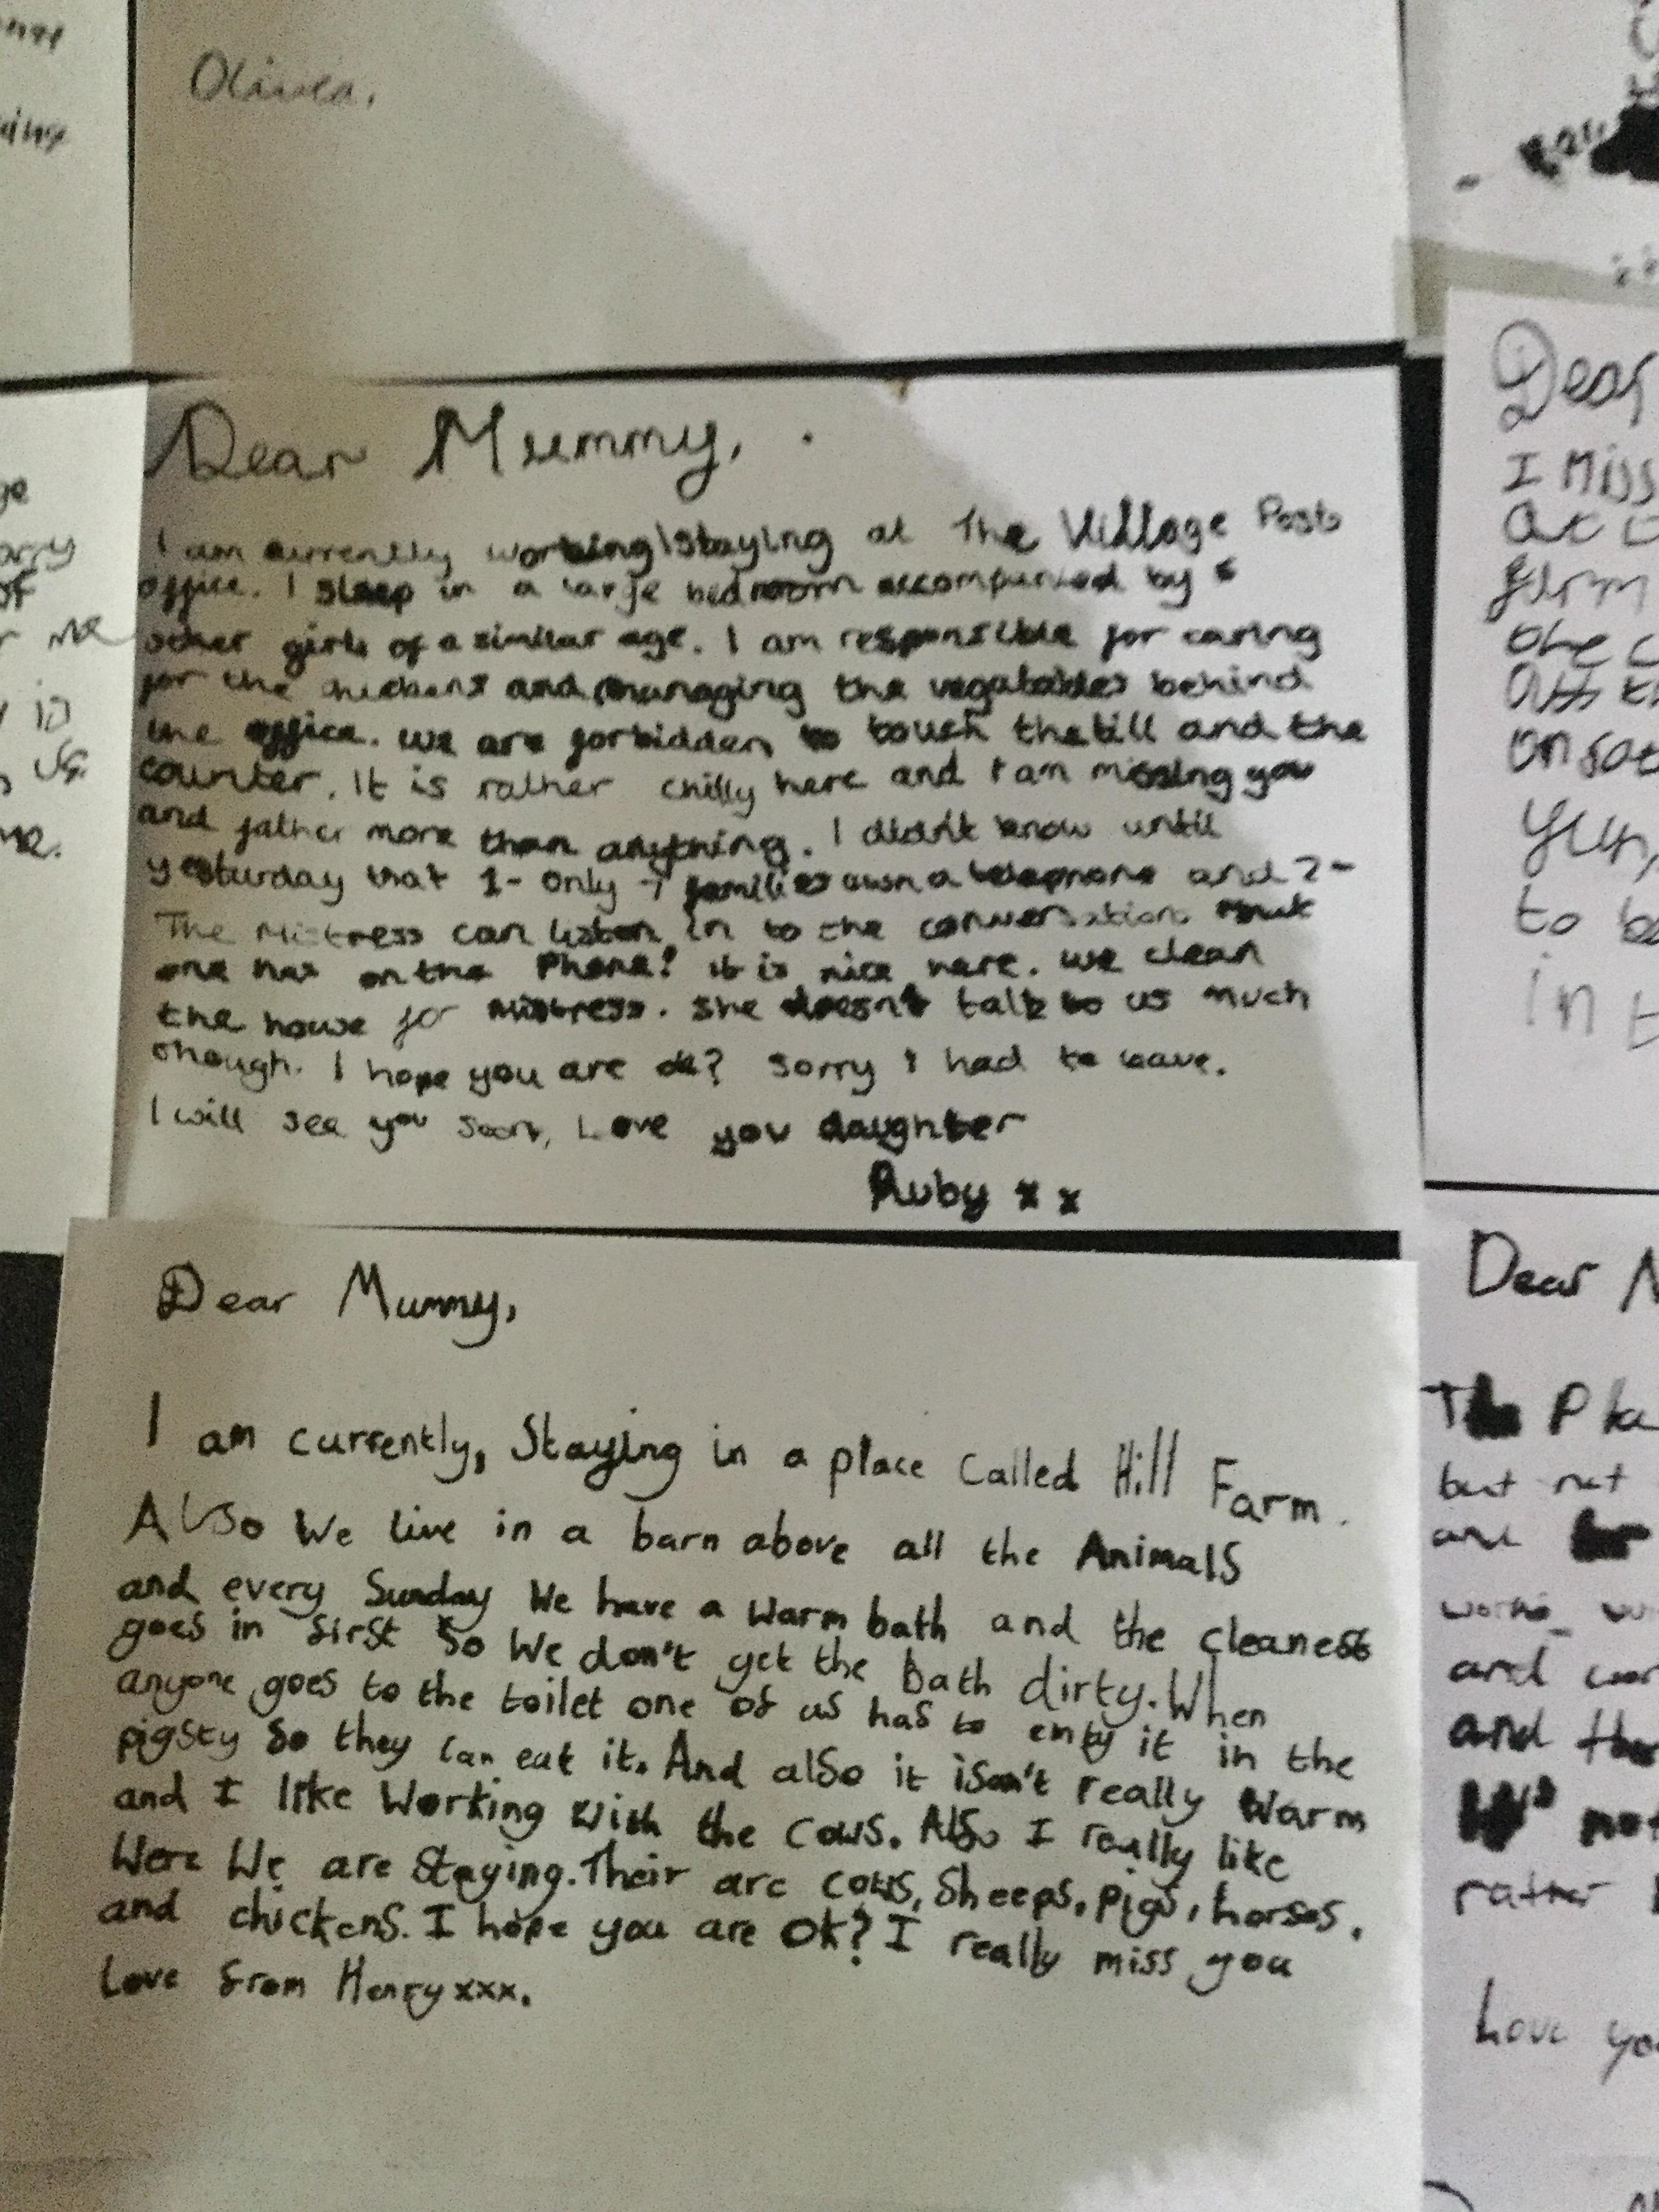 Olivia.
Dear Mummy,
I am currently working\staying at The Village Post
office. I sleep in a large bedroom accompanied by
other girls of a similar age. I am responsible for caring
for the chickens and managing the vegatables behind
the office. we are forbidden to touch the till and the
counter. It is rather chilly here and I am missing you
and father more than anything. I didn't know until
yesturday that 1- only 7 families own a telephone and 2-
The Mistress can listen in to the conversations that
one has on the Phone! it is nice here. we clean
the house for Mistress. She doesn't talk to us much
though. I hope you are ok? Sorry I had to leave.
I will see you soon, Love you daughter
Ruby x x
Dear Mummy,
I am currently, Staying in a place called Hill Farm.
Also We live in a barn above all the Animals
and every Sunday We have a warm bath and the cleanest
goes in first so We don't get the bath dirty. When
anyone goes to the toilet one of us has to empty it in the
pigsty so they can eat it. And also it isn't really warm
and I like Working with the cows. Also I really like
Were We are Staying. Their are cows, Sheeps, pigs, horses,
and chickens. I hope you are ok? I really miss you
Love from Henry xxx.
Dear
I Miss
to be
in
Dear
but not
and
and
and
not
rather
Love